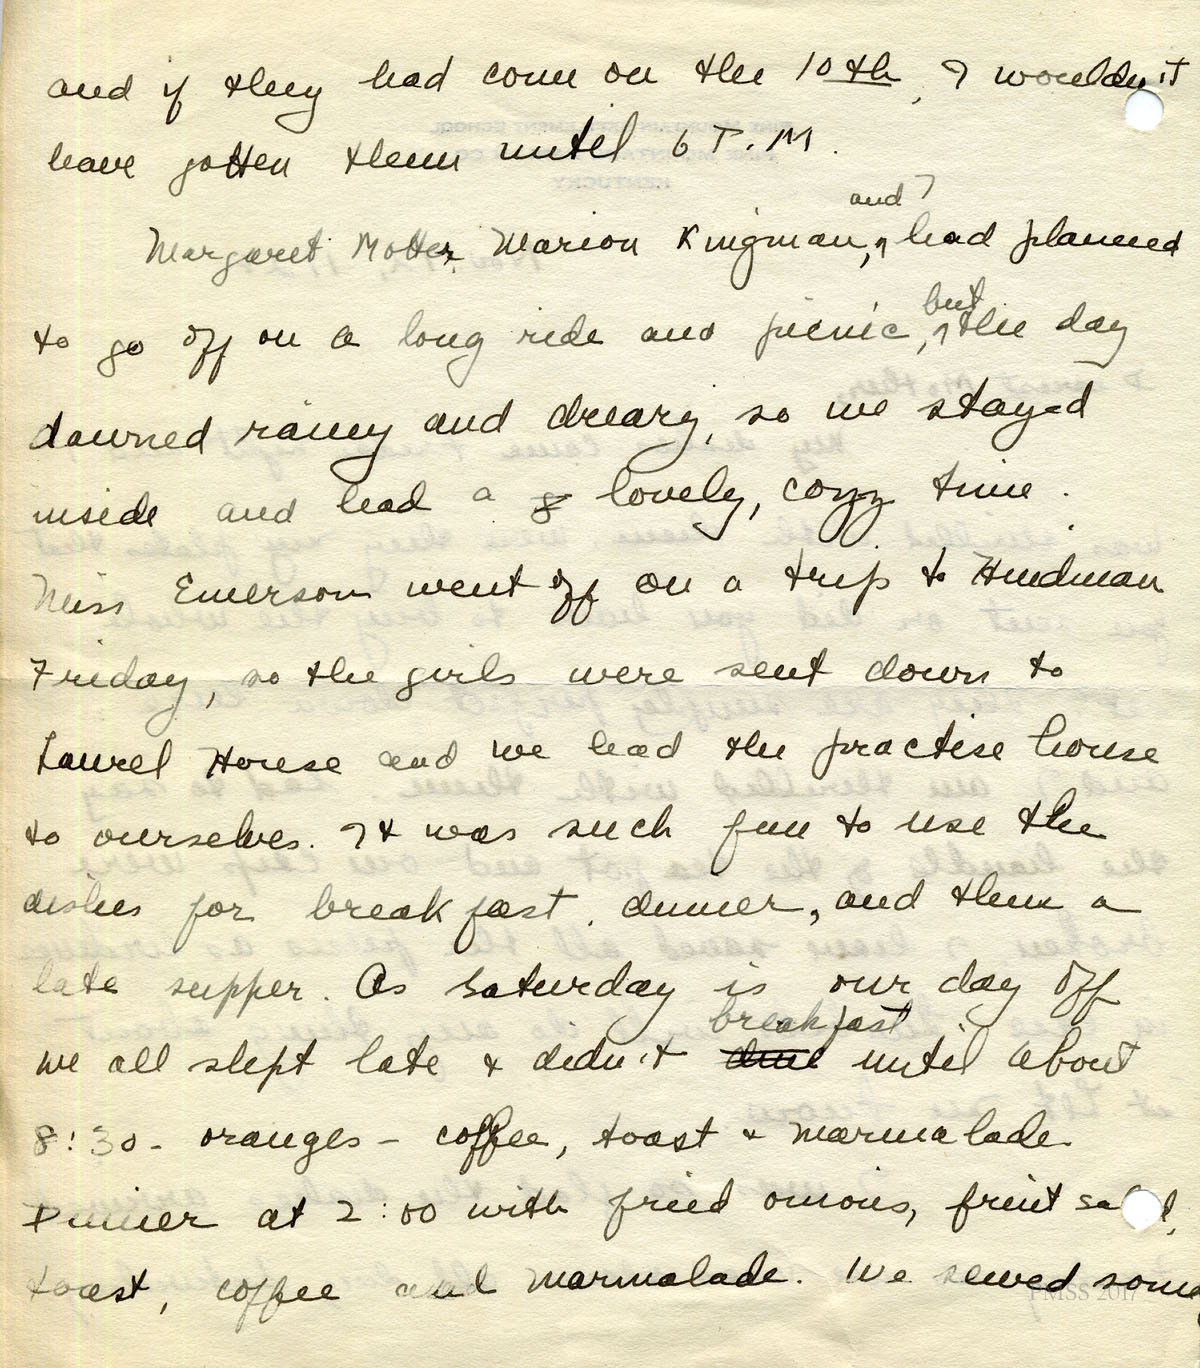 and if they had come on the 10th, I wouldn't
have gotten them until 6 P.M.
Margaret Motter, Marion Kingman, and I had planned
to go off on a long ride and picnic, but the day
dawned rainy and dreary, so we stayed
inside and had a lovely, cozy time.
Miss Emerson went off on a trip to Hindman
Friday, so the girls were sent down to
Laurel House and we had the practise house
to ourselves. It was such fun to use the
dishes for breakfast, dinner, and then a
late supper. As Saturday is our day off
we all slept late & didn't breakfast until about
8:30 - oranges - coffee, toast & marmalade.
Dinner at 2:00 with fried onions, fruit salad,
toast, coffee and marmalade. We sewed some
PMSS 2017